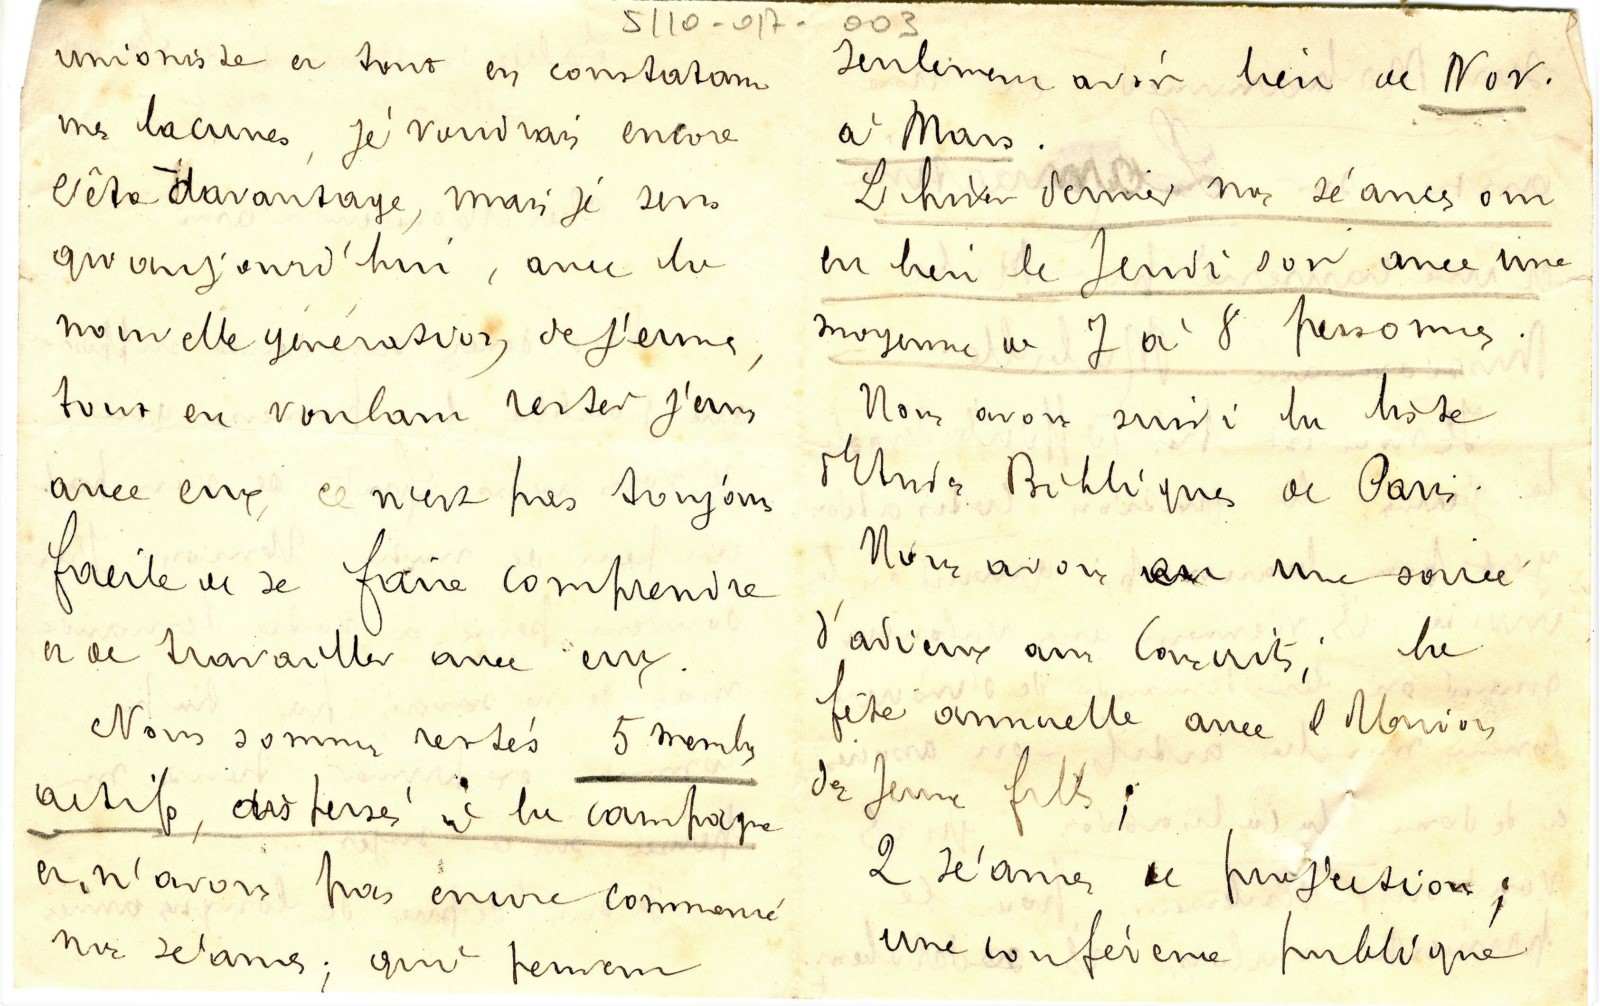 5/10-017-003
unioniste et tout en constatant
mes lacunes, je voudrais encore
l'être davantage, mais je sens
qu'aujourd'hui, avec la
nouvelle génération de jeunes,
tout en voulant rester jeune
avec eux, ce n'est pas toujours
facile de se faire comprendre
et de travailler avec eux.
Nous sommes restés 5 membres
actifs, dispersés à la campagne
et n'avons pas encore commencé
nos séances; qui peuvent
seulement avoir lieu de Nov.
à Mars.
L'hiver dernier nos séances ont
eu lieu le Jeudi soir avec une
moyenne de 7 à 8 personnes.
Nous avons suivi la liste
d'Etudes Bibliques de Paris.
Nous avons eu une soirée
d'adieux aux Conscrits; la
fête annuelle avec l'Union
des Jeunes filles;
2 séances de projection;
une conférence publique